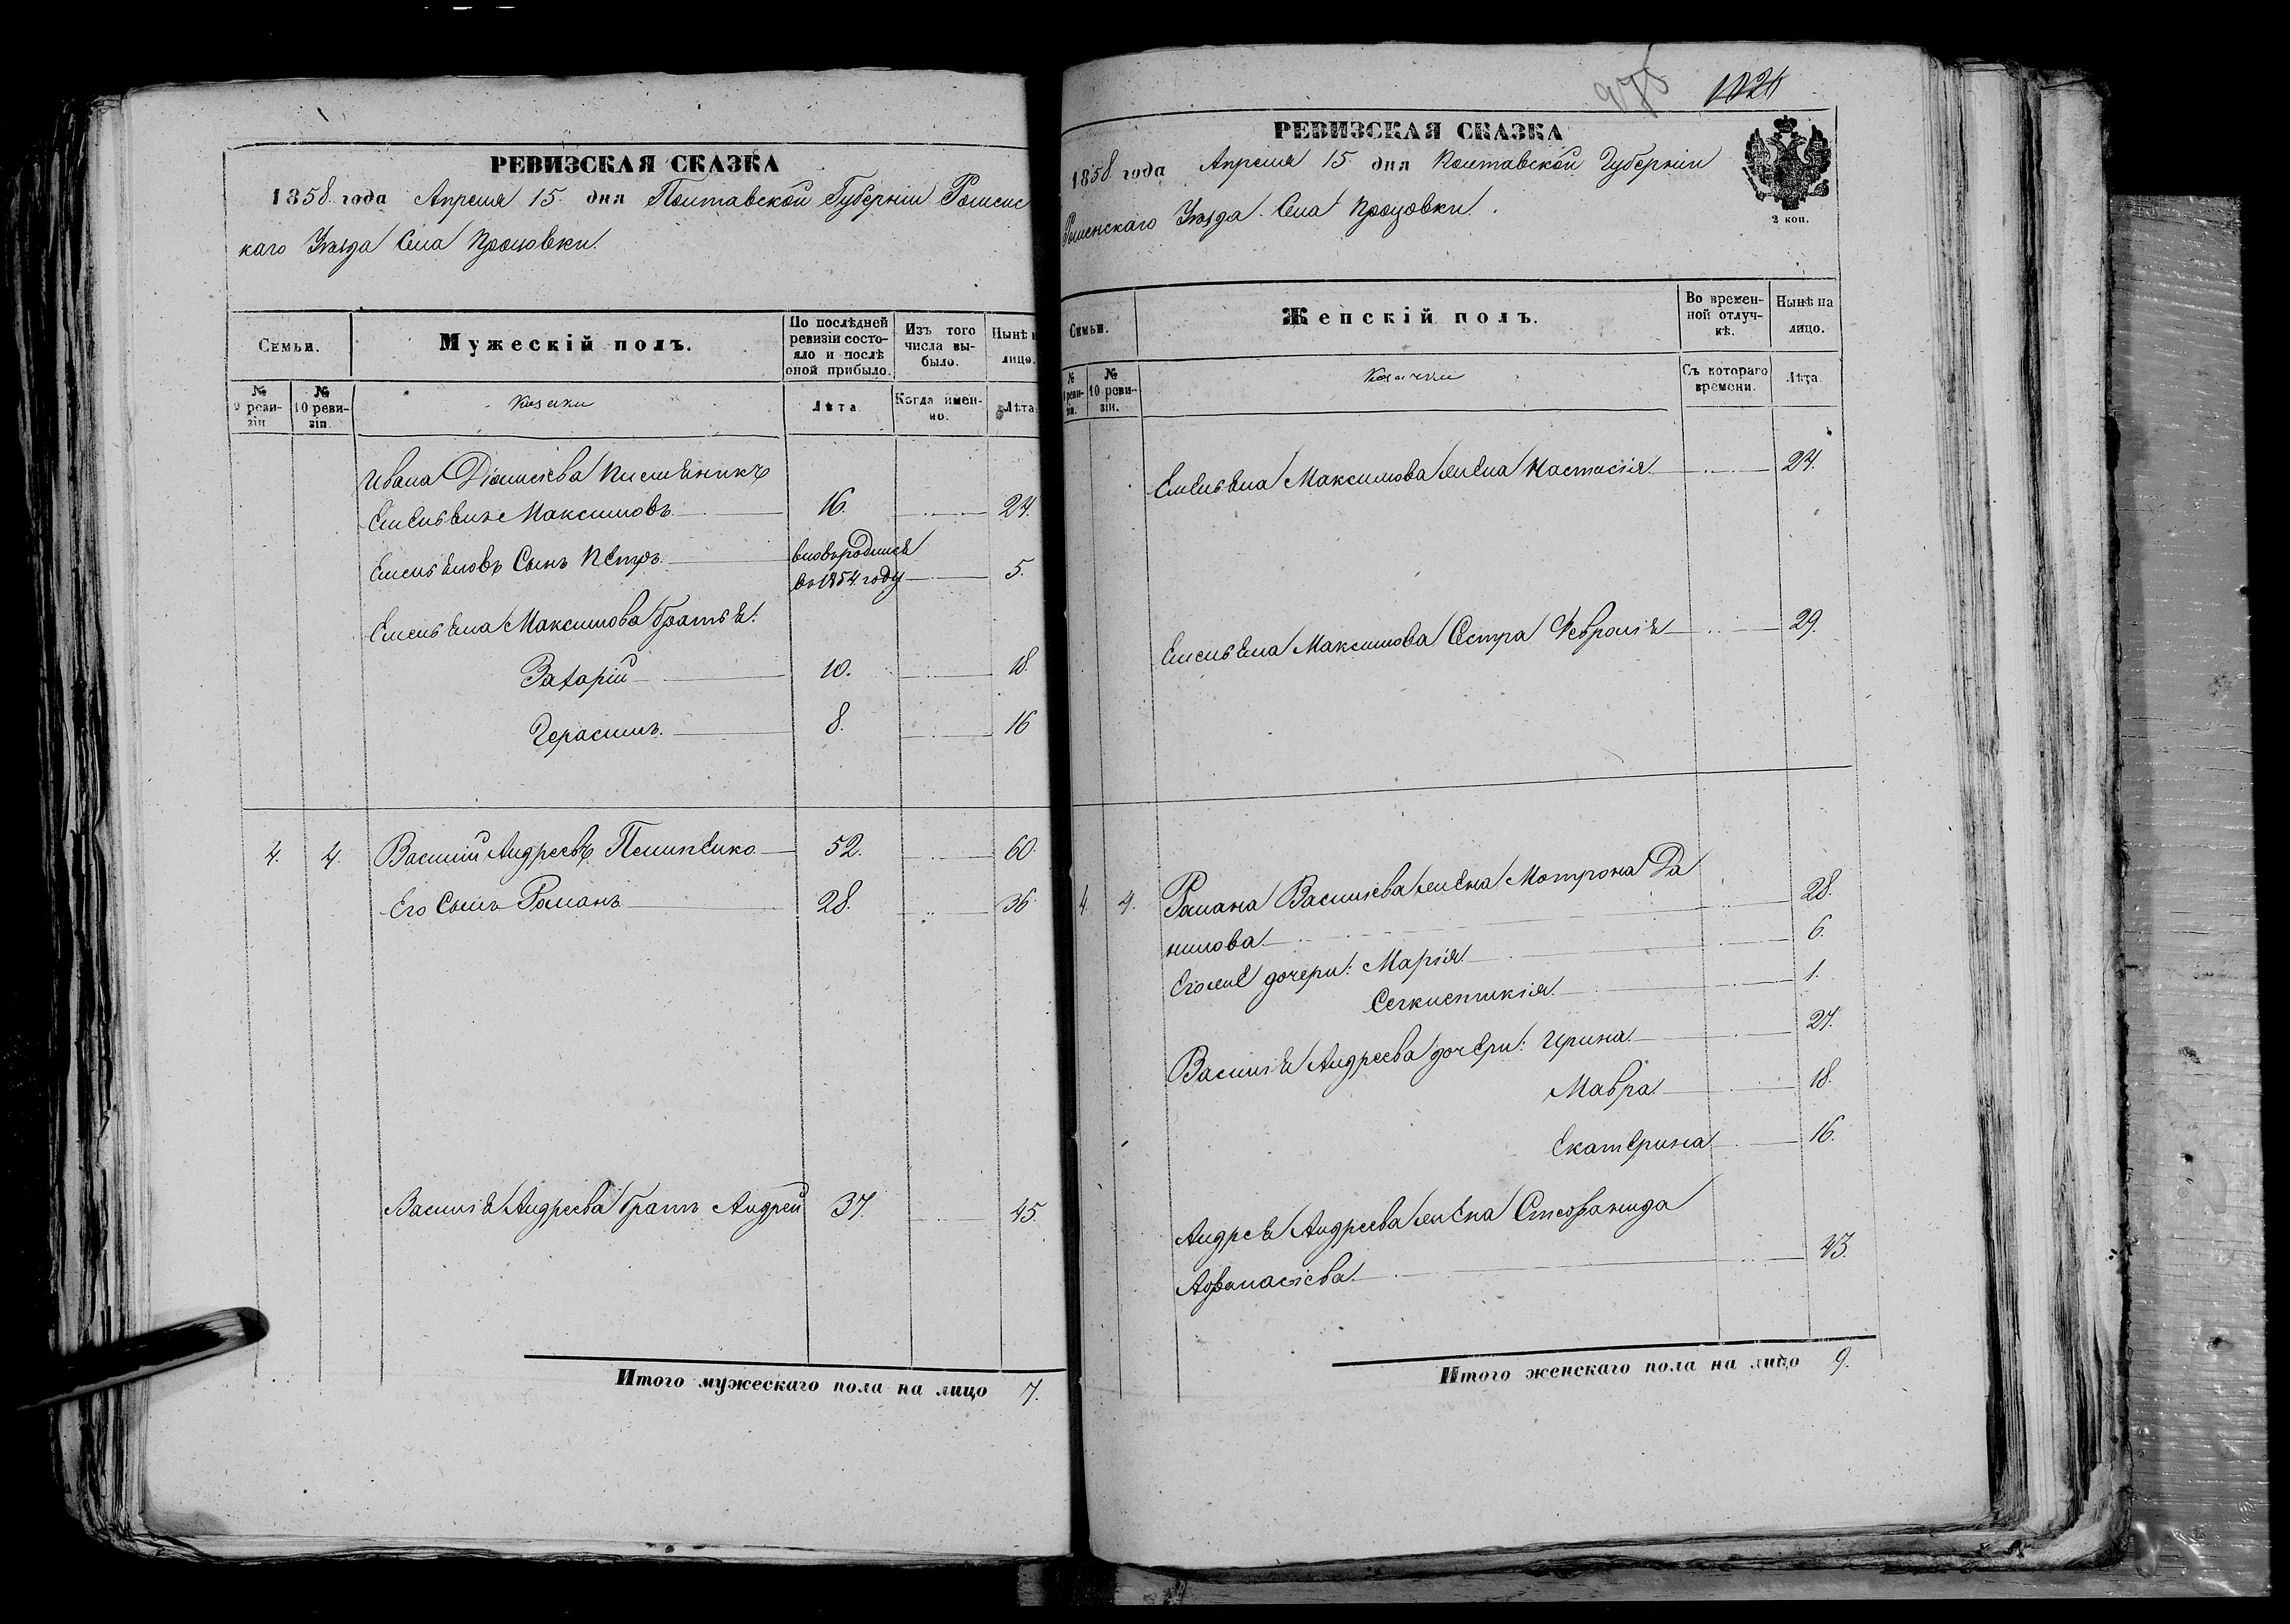 РЕВИЗСКАЯ СКАЗКА
1858 года Апреля 15. дня Полтавской Губерніи Роменс
каго Уѣзда Села Процовки.
Семьи.
Мужескій полъ.
По послѣдней ревизіи состояло и послѣ оной прибыло.
Изъ того числа выбыло.
Нынѣ н
лицо.
№ 9 ревизіи
№ 10 ревизіи
Козаки
Лѣта
Когда именно.
Лѣта
Ивана Племѣникъ
Емельянъ Максимовъ 16. 24.
Емельяновъ Сынъ Петръ вновьродился въ 1854 году 5.
Емельяна Максимова братья:
Захарій 10. 18.
Герасимъ 8. 16
4. 4. Василій Андреевъ 52. 60.
Его Сынъ Романъ 28. 36
Василія Андреева братъ Андрей 37. 45.
Итого мужескаго пола на лицо 7.
975 1024
РЕВИЗСКАЯ СКАЗКА
1858 года Апреля 15. дня Полтавской Губерніи
Роменскаго Уѣзда Села Процовки.
2 коп.
Семьи.
Женскій полъ.
Во временной отлучкѣ.
Нынѣ на лицо.
№ 9 ревизіи.
№ 10 ревизіи.
Козачки
Съ котораго времени.
Лѣта
Емельяна Максимова жена Настасія 24.
Емельяна Максимова Сестра Февронія 29.
4. 4. Романа Василіева жена Мотрона Да
нилова 28.
Егоже дочери: Марія 6.
1.
Василія Андреева дочери: Ирина 27.
Мавра 18.
Екатерина 16.
Андрея Андреева жена Стефанида
Афанасіева 43.
Итого женскаго пола на лицо 9.